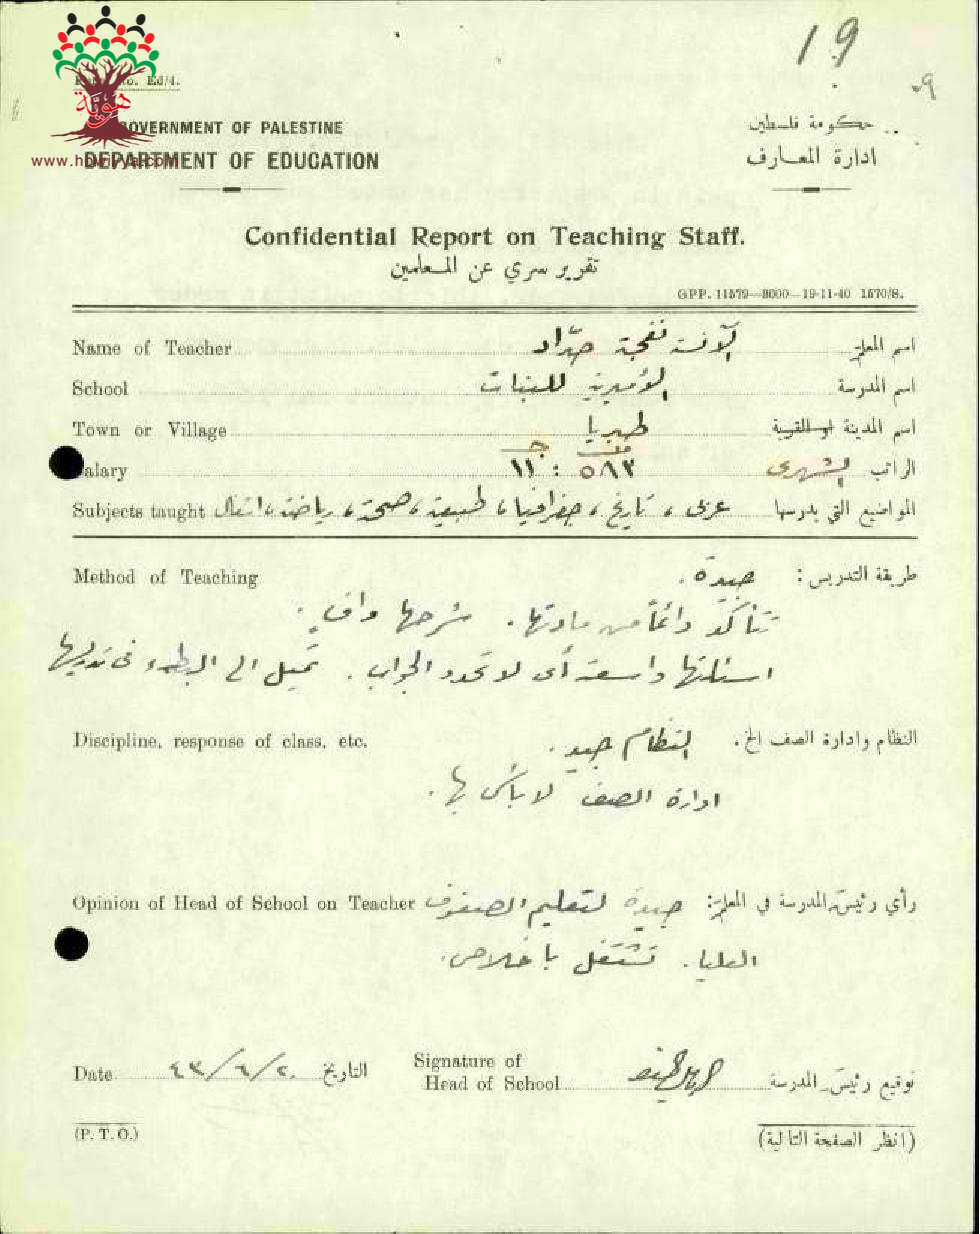 19
هوية
www.howiyya.com
No. Ed/4.
GOVERNMENT OF PALESTINE
DEPARTMENT OF EDUCATION
حكومة فلسطين
ادارة المعارف
Confidential Report on Teaching Staff.
تقرير سري عن المعلمين
GPP. 11579—8000—19-11-40 1570/S.
Name of Teacher الآنسة حداد اسم المعلم
School الأميرية للبنات اسم المدرسة
Town or Village طبريا اسم المدينة او القرية
Salary ١١ : ٥٨٣ الراتب الشهري
Subjects taught عربي، تاريخ، جغرافيا، طبيعة، صحة، رياضة، اشغال المواضيع التي يدرسها
Method of Teaching جيدة. طريقة التدريس:
تتأكد دائماً من مادتها. شرحها وافٍ.
اسئلتها واسعة أي لا تحدد الجواب. تميل الى البطء في تدريسها
Discipline, response of class, etc. النظام جيد. النظام وادارة الصف الخ.
ادارة الصف لا بأس بها.
Opinion of Head of School on Teacher جيدة لتعليم الصفوف رأي رئيس المدرسة في المعلم:
العليا. تشتغل باخلاص.
Date ٢٠/٦/٤٣ التاريخ
Signature of
Head of School توقيع رئيس المدرسة
(P. T. O.)
(انظر الصفحة التالية)